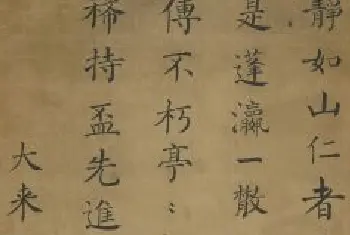 靜如山仁者
是蓬瀛一散
傳不朽亭〻
稀持盃先進
大来